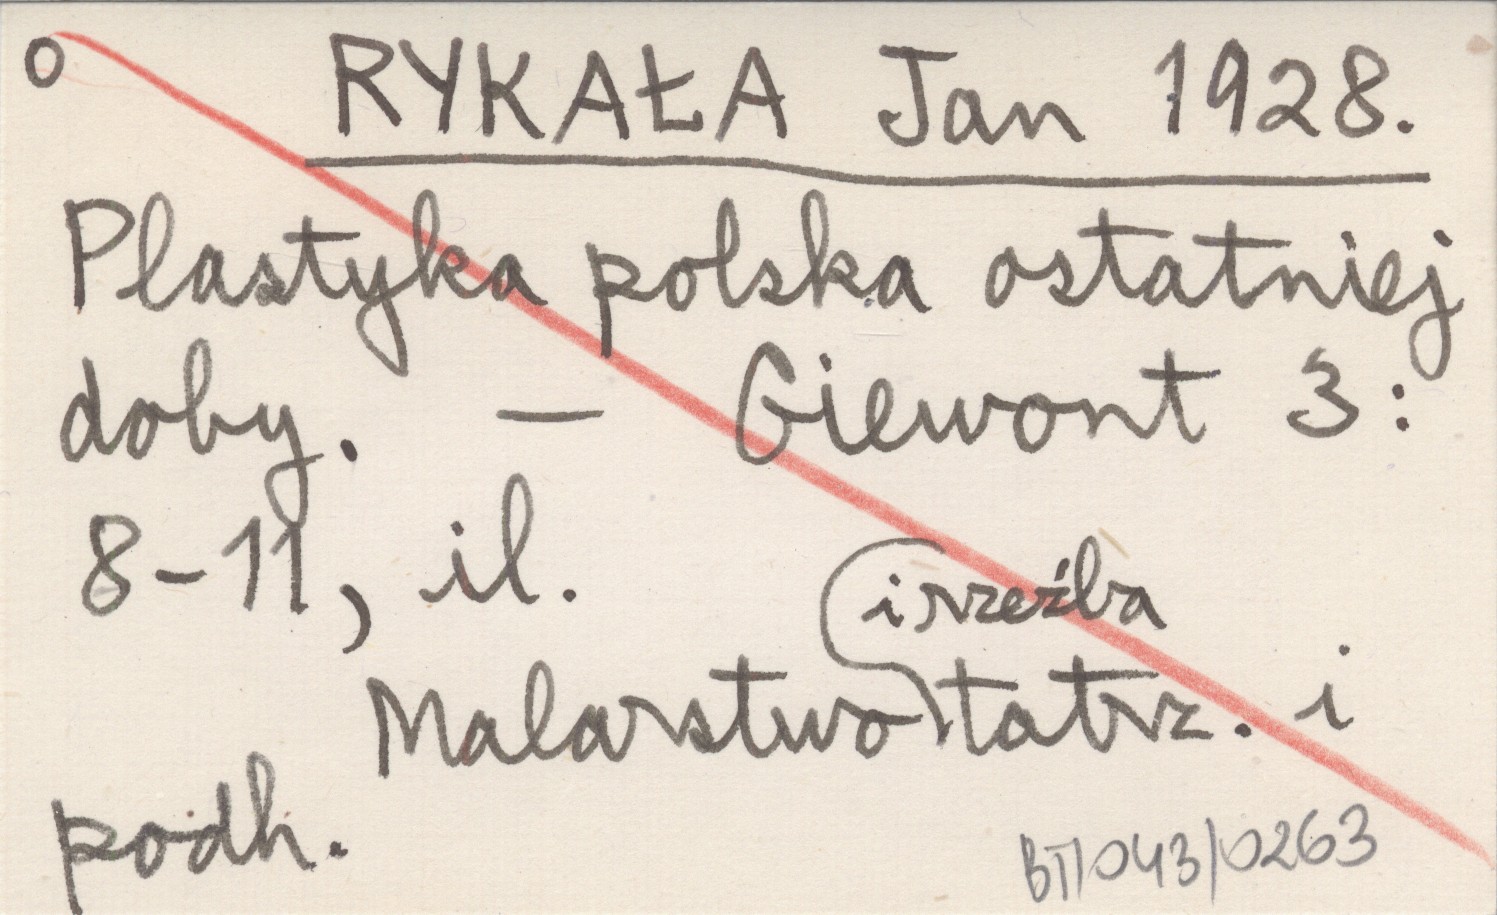 o RYKAŁA Jan 1928.
Plastyka polska ostatniej
doby. — Giewont 3:
8-11, il.
i rzeźba
Malarstwo tatrz. i
podh.
BT/043/0263